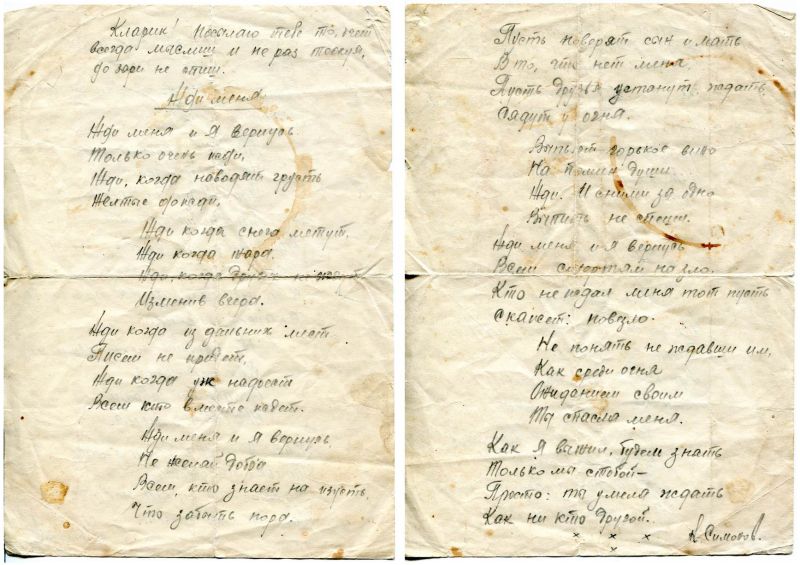 Кларик! Посылаю тебе то, о чем
всегда мыслиш и не раз тоскуя,
до зари не спиш.
Жди меня
Жди меня и Я вернусь
Только очень жди,
Жди, когда наводят грусть
Желтые дожди,
Жди когда снега метут,
Жди когда жара.
Жди, когда других не
Изменив вчера.
Жди когда из дальних мест
Писем не придет,
Жди когда уж надоест
Всем кто вместе ждет.
Жди меня и Я вернусь,
Не желай добра
Всем, кто знает на изусть,
Что забыть пора.
Пусть поверят сын и мать
В то, что нет меня
Пусть друзья устанут ждать,
Сядут у огня.
Выпьют горькое вино
На помин души
Жди. И с ними за одно
Выпить не спеши.
Жди меня и я вернусь
Всем смертям на зло.
Кто не ждал меня тот пусть
скажет: повезло.
Не понять не ждавши им,
Как среди огня
Ожиданием своим
Ты спасла меня.
Как Я выжил, будем знать
Только мы с тобой-
Просто: ты умела ждать
Как ни кто другой.
х х х
х
К. Симонов.